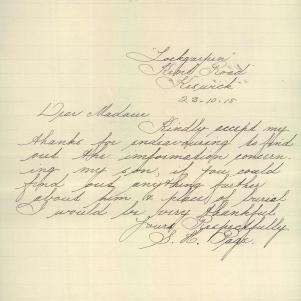 "Lockgarpin"
Road
Keswick
23-10-15
Dear Madam
Kindly accept my
thanks for endeavouring to find
out the imformation concern-
ing my son, if you could
find out anything further
about him & place of burial
I would be very thankful
Yours Respectfully.
S. H. Page.